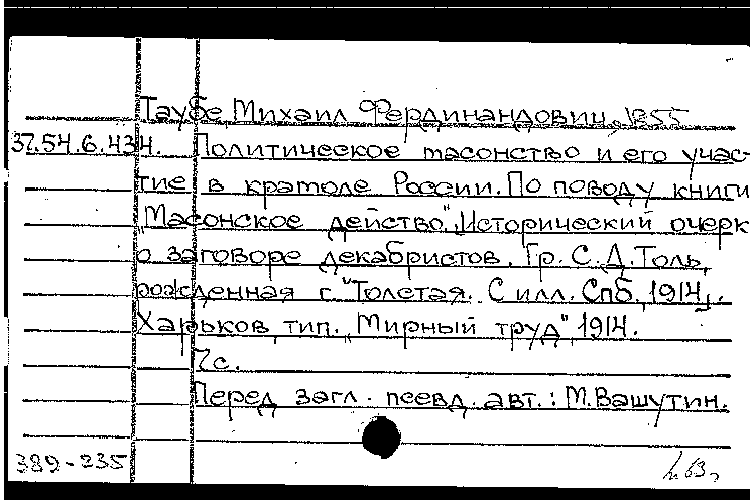 Таубе, Михаил Фердинандович, 1855
37.54.6.434. Политическое масонство и его учас-
тие в крамоле России. По поводу книги
"Масонское действо". Исторический очерк
о заговоре декабристов. Гр. С. Д. Толь,
рожденная г. "Толстая. С илл. Спб., 1914".
Харьков, тип. "Мирный труд", 1914.
7с.
Перед загл. псевд. авт.: М. Вашутин.
389-235